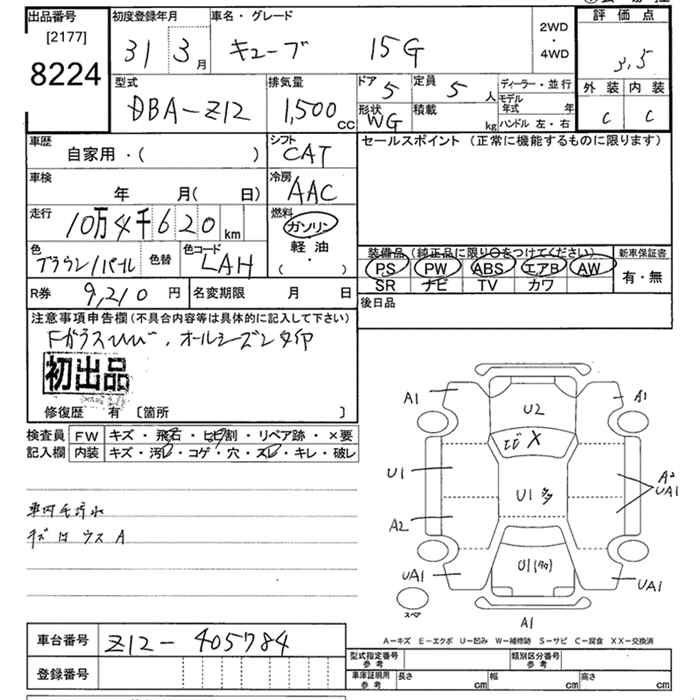 出品番号
[2177]
8224
初度登録年月
31 3月
車名・グレード
キューブ 15G
2WD
・
4WD
評価点
3.5
外装 内装
C C
型式
DBA-Z12
排気量
1,500 CC
ドア 5
定員 5 人
形状 WG
積載 kg
ディーラー・並行
モデル年式 年
ハンドル 左・右
車歴
自家用・( )
シフト
CAT
セールスポイント(正常に機能するものに限ります)
車検
年 月( 日)
冷房
AAC
走行
10万4千620km
燃料
ガソリン
軽油
( ・ )
色
ブラウン/パール
色替
色コード
LAH
装備品(純正品に限り○をつけてください)
PS PW ABS エアB AW
SR ナビ TV カワ
新車保証書
有・無
R券 9,210円
名変期限 月 日
後日品
注意事項申告欄(不具合内容等は具体的に記入して下さい)
Fガラスひび、オールシーズンタイヤ
初出品
修復歴 有 〔箇所 〕
検査員記入欄
FW キズ・飛石・ヒビ割・リペア跡・×要
内装 キズ・汚レ・コゲ・穴・スレ・キレ・破レ
車内毛汚れ
キズ ウス A
A1 A1
U2
ヒビ X
U1
U1 多
A2
UA1
A2
U1(多)
UA1
UA1
スペア
A1
A-キズ E-エクボ U-凹み W-補修跡 S-サビ C-腐食 XX-交換済
車台番号 Z12-405784
登録番号
型式指定番号 参考
類別区分番号 参考
車庫証明用 参考
長さ cm 幅 cm 高さ cm